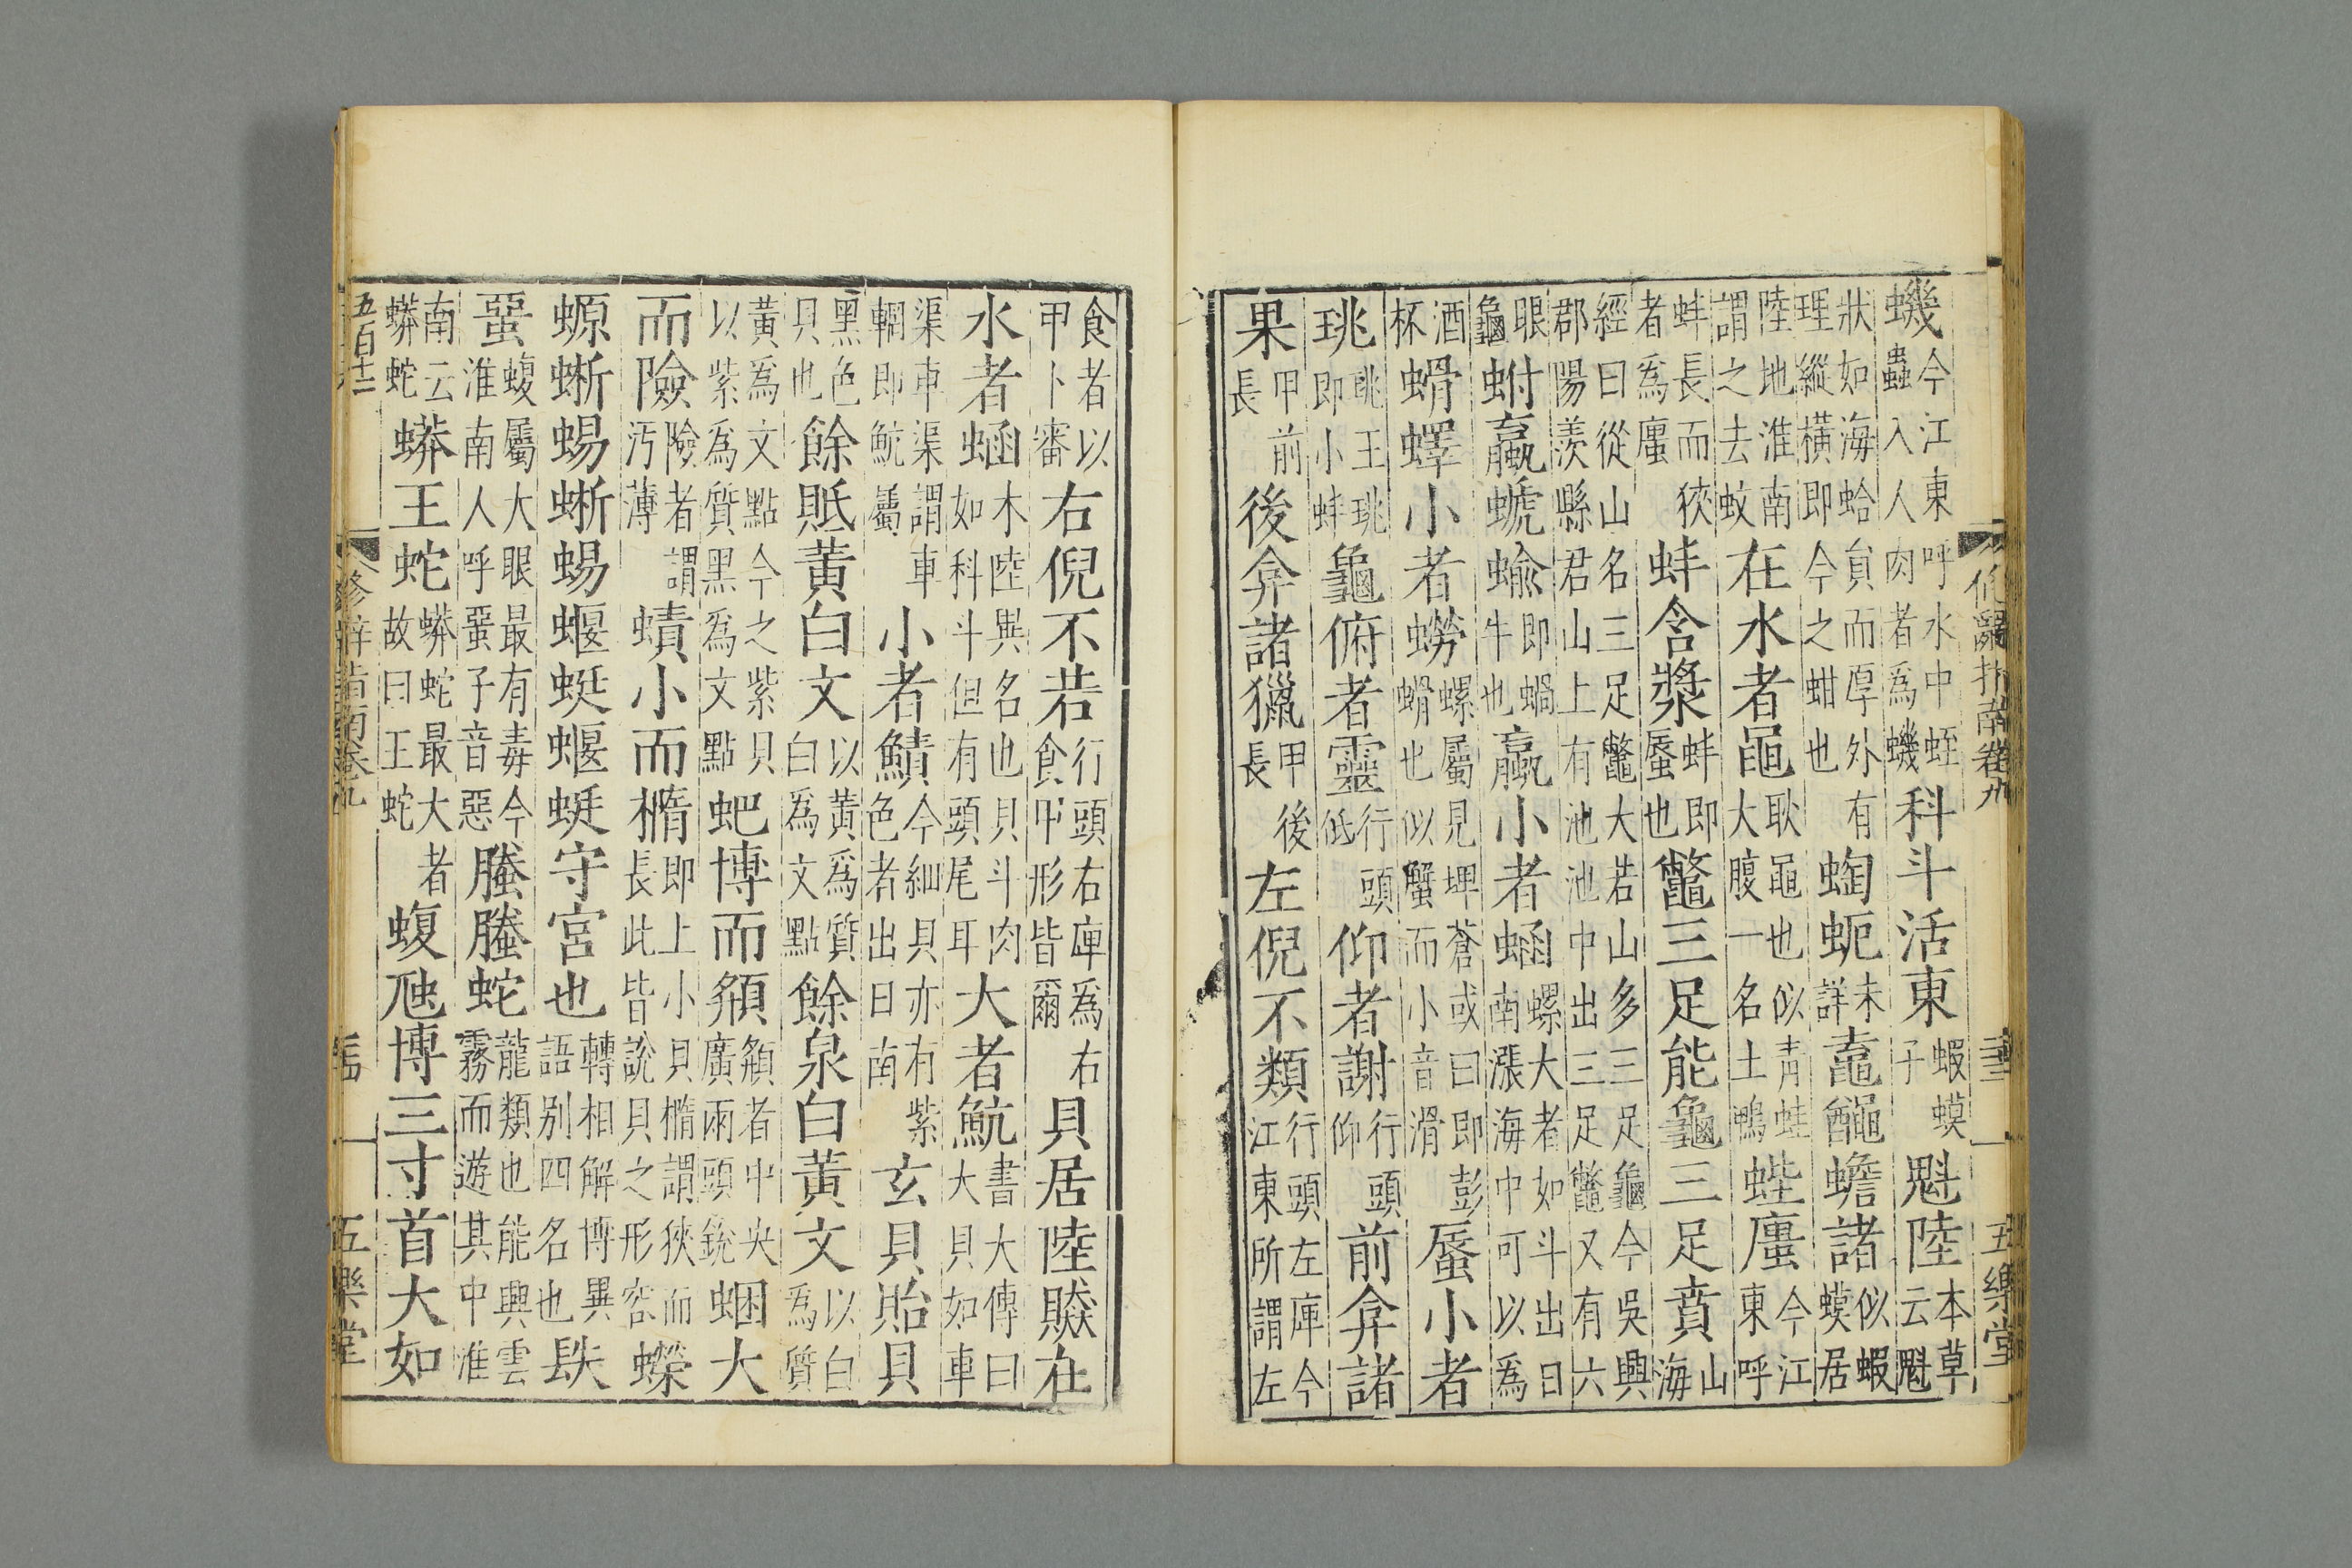 修辭指南卷九 五樂堂
蟣今江東呼水中蛭蟲入人肉者為蟣科斗活東蝦蟆子魁陸本草云魁
狀如海蛤貟而厚外有理縱橫即今之蚶也蜪蚅未詳鼁𪓰蟾諸似蝦蟆居
陸地淮南謂之去蚊在水者黽耿黽也似青蛙大腹一名土鴨蜌螷今江東呼
蚌長而狹者為螷蚌含漿蚌即蜃也鼈三足能龜三足賁山海
經曰從山名三足鼈大若山多三足龜今吳興郡陽羨縣君山上有池池中出三足鼈又有六
眼龜蚹蠃螔蝓即蝸牛也蠃小者蜬螺大者如斗出日南漲海中可以為
酒杯螖蠌小者蟧螺屬見埤蒼或曰即彭螖也似蟹而小音滑蜃小者
珧珧王珧即小蚌龜俯者靈行頭低仰者謝行頭仰前弇諸
果甲前長後弇諸獵甲後長左倪不類行頭左庳今江東所謂左
食者以甲卜審右倪不若行頭右庳為右食甲形皆爾貝居陸贆在
水者蜬木陸異名也貝斗肉如科斗但有頭尾耳大者魧書大傳曰大貝如車
渠車渠謂車輞即魧屬小者鰿今細貝亦有紫色者出日南玄貝貽貝
黑色貝也餘貾黃白文以黃為質白為文點餘泉白黃文以白為質
黃為文點今之紫貝以紫為質黑為文點蚆博而頯頯者中央廣兩頭銳蜠大
而險險者謂汚薄蟦小而橢即上小貝橢謂狹而長此皆說貝之形容蠑
螈蜥蜴蜥蜴蝘蜓蝘蜓守宮也轉相解博異語別四名也镻
蝁蝮屬大眼最有毒今淮南人呼蝁子音惡螣螣蛇龍類也能興雲霧而遊其中淮
南云蟒蛇蟒王蛇蟒蛇最大者故曰王蛇蝮虺博三寸首大如
五百十二 修辭指南卷九 五樂堂